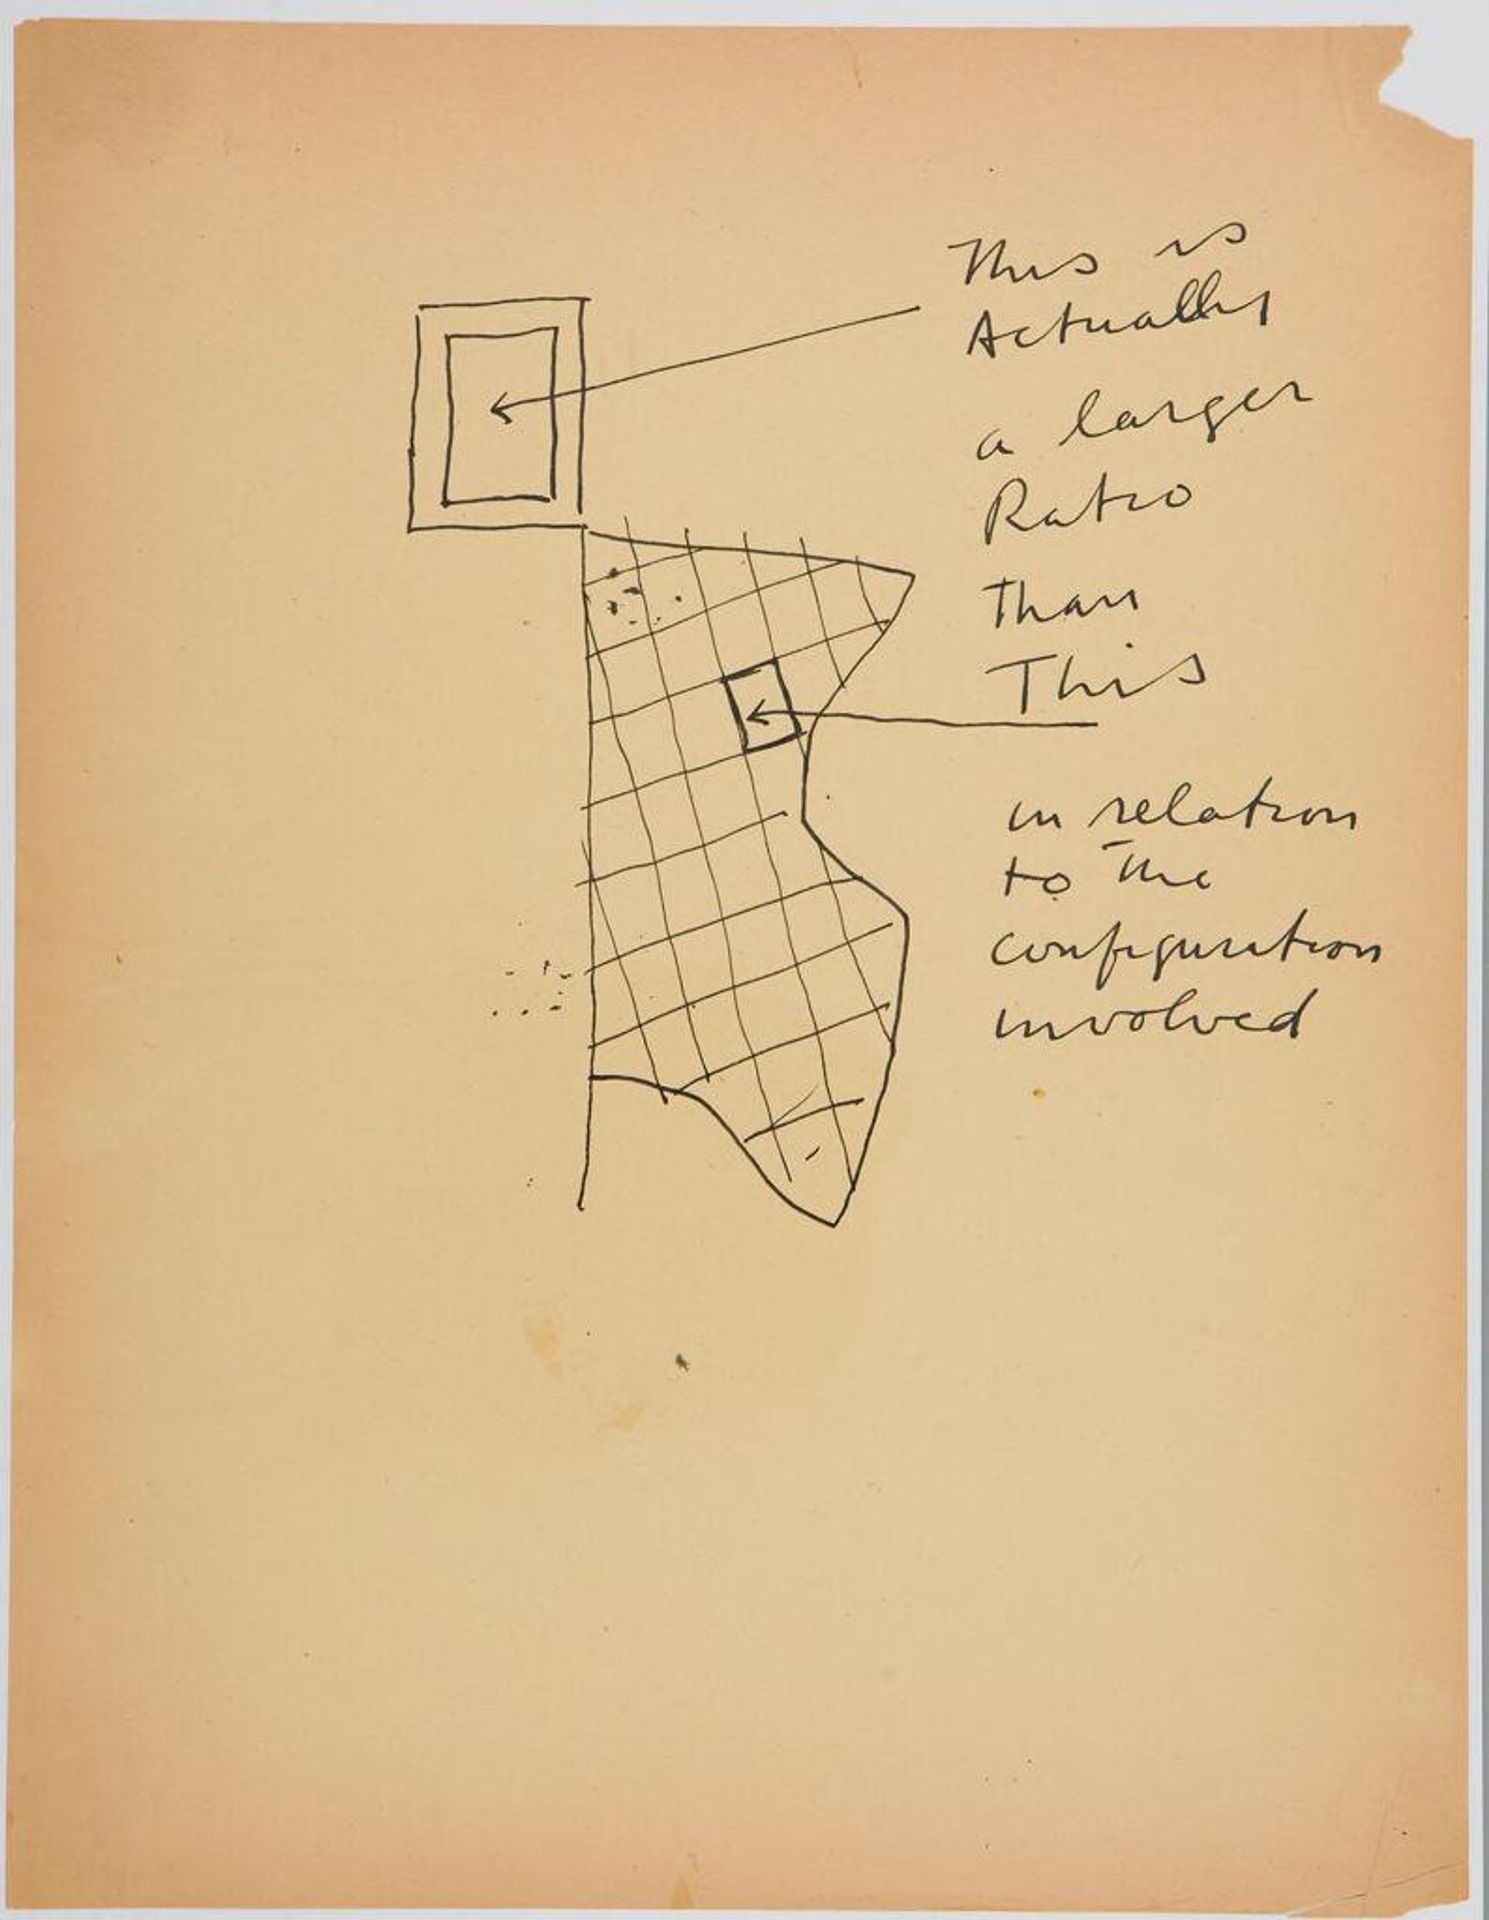 This is
Actually
a larger
Ratio
than
This
in relation
to the
configuration
involved